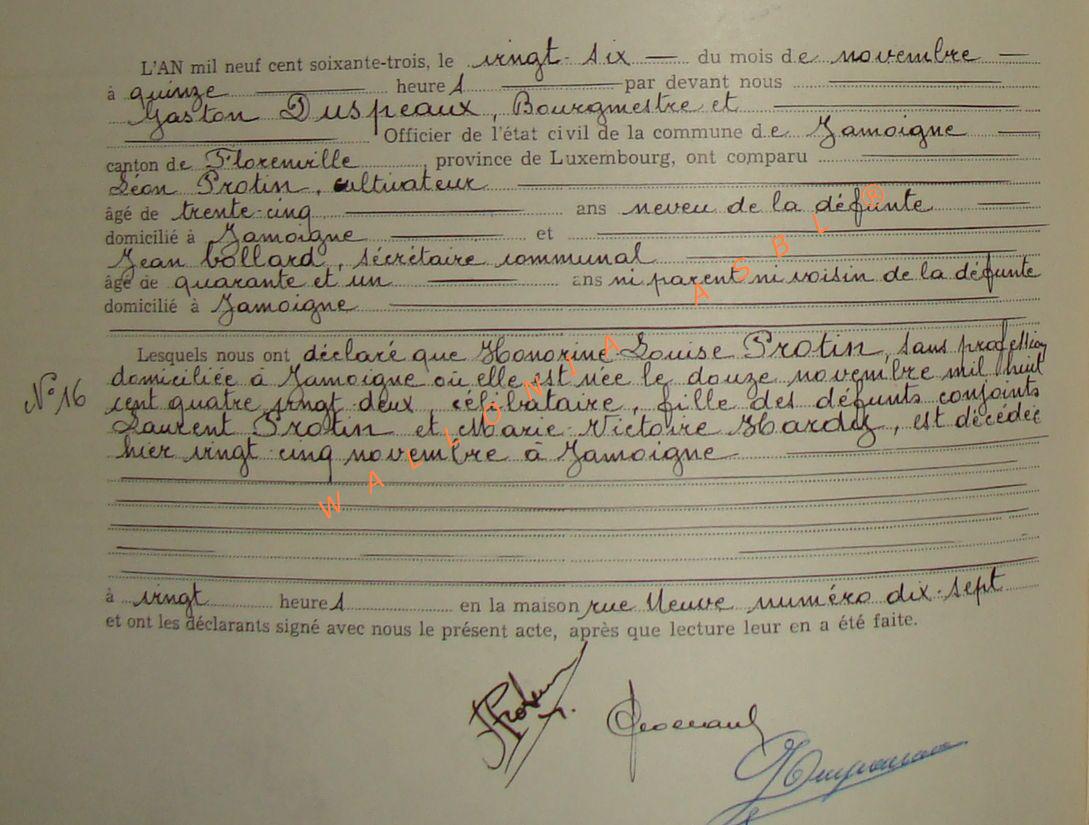 L'AN mil neuf cent soixante-trois, le vingt-six du mois de novembre
à quinze heures par devant nous
Gaston Duspeaux, Bourgmestre et
Officier de l'état civil de la commune de Jamoigne
canton de Florenville, province de Luxembourg, ont comparu
Léon Protin, cultivateur
âgé de trente-cinq ans neveu de la défunte
domicilié à Jamoigne et
Jean Collard, sécrétaire communal
âgé de quarante et un ans ni parent ni voisin de la défunte
domicilié à Jamoigne
Lesquels nous ont déclaré que Honorine-Louise Protin, sans profession
domiciliée à Jamoigne où elle est née le douze novembre mil huit
N° 16
cent quatre vingt deux, célibataire, fille des défunts conjoints
Laurent Protin et Marie-Victoire Hardy, est décédée
hier vingt-cinq novembre à Jamoigne
à vingt heures en la maison rue Neuve numéro dix-sept
et ont les déclarants signé avec nous le présent acte, après que lecture leur en a été faite.
WALLONIA ASBL ®